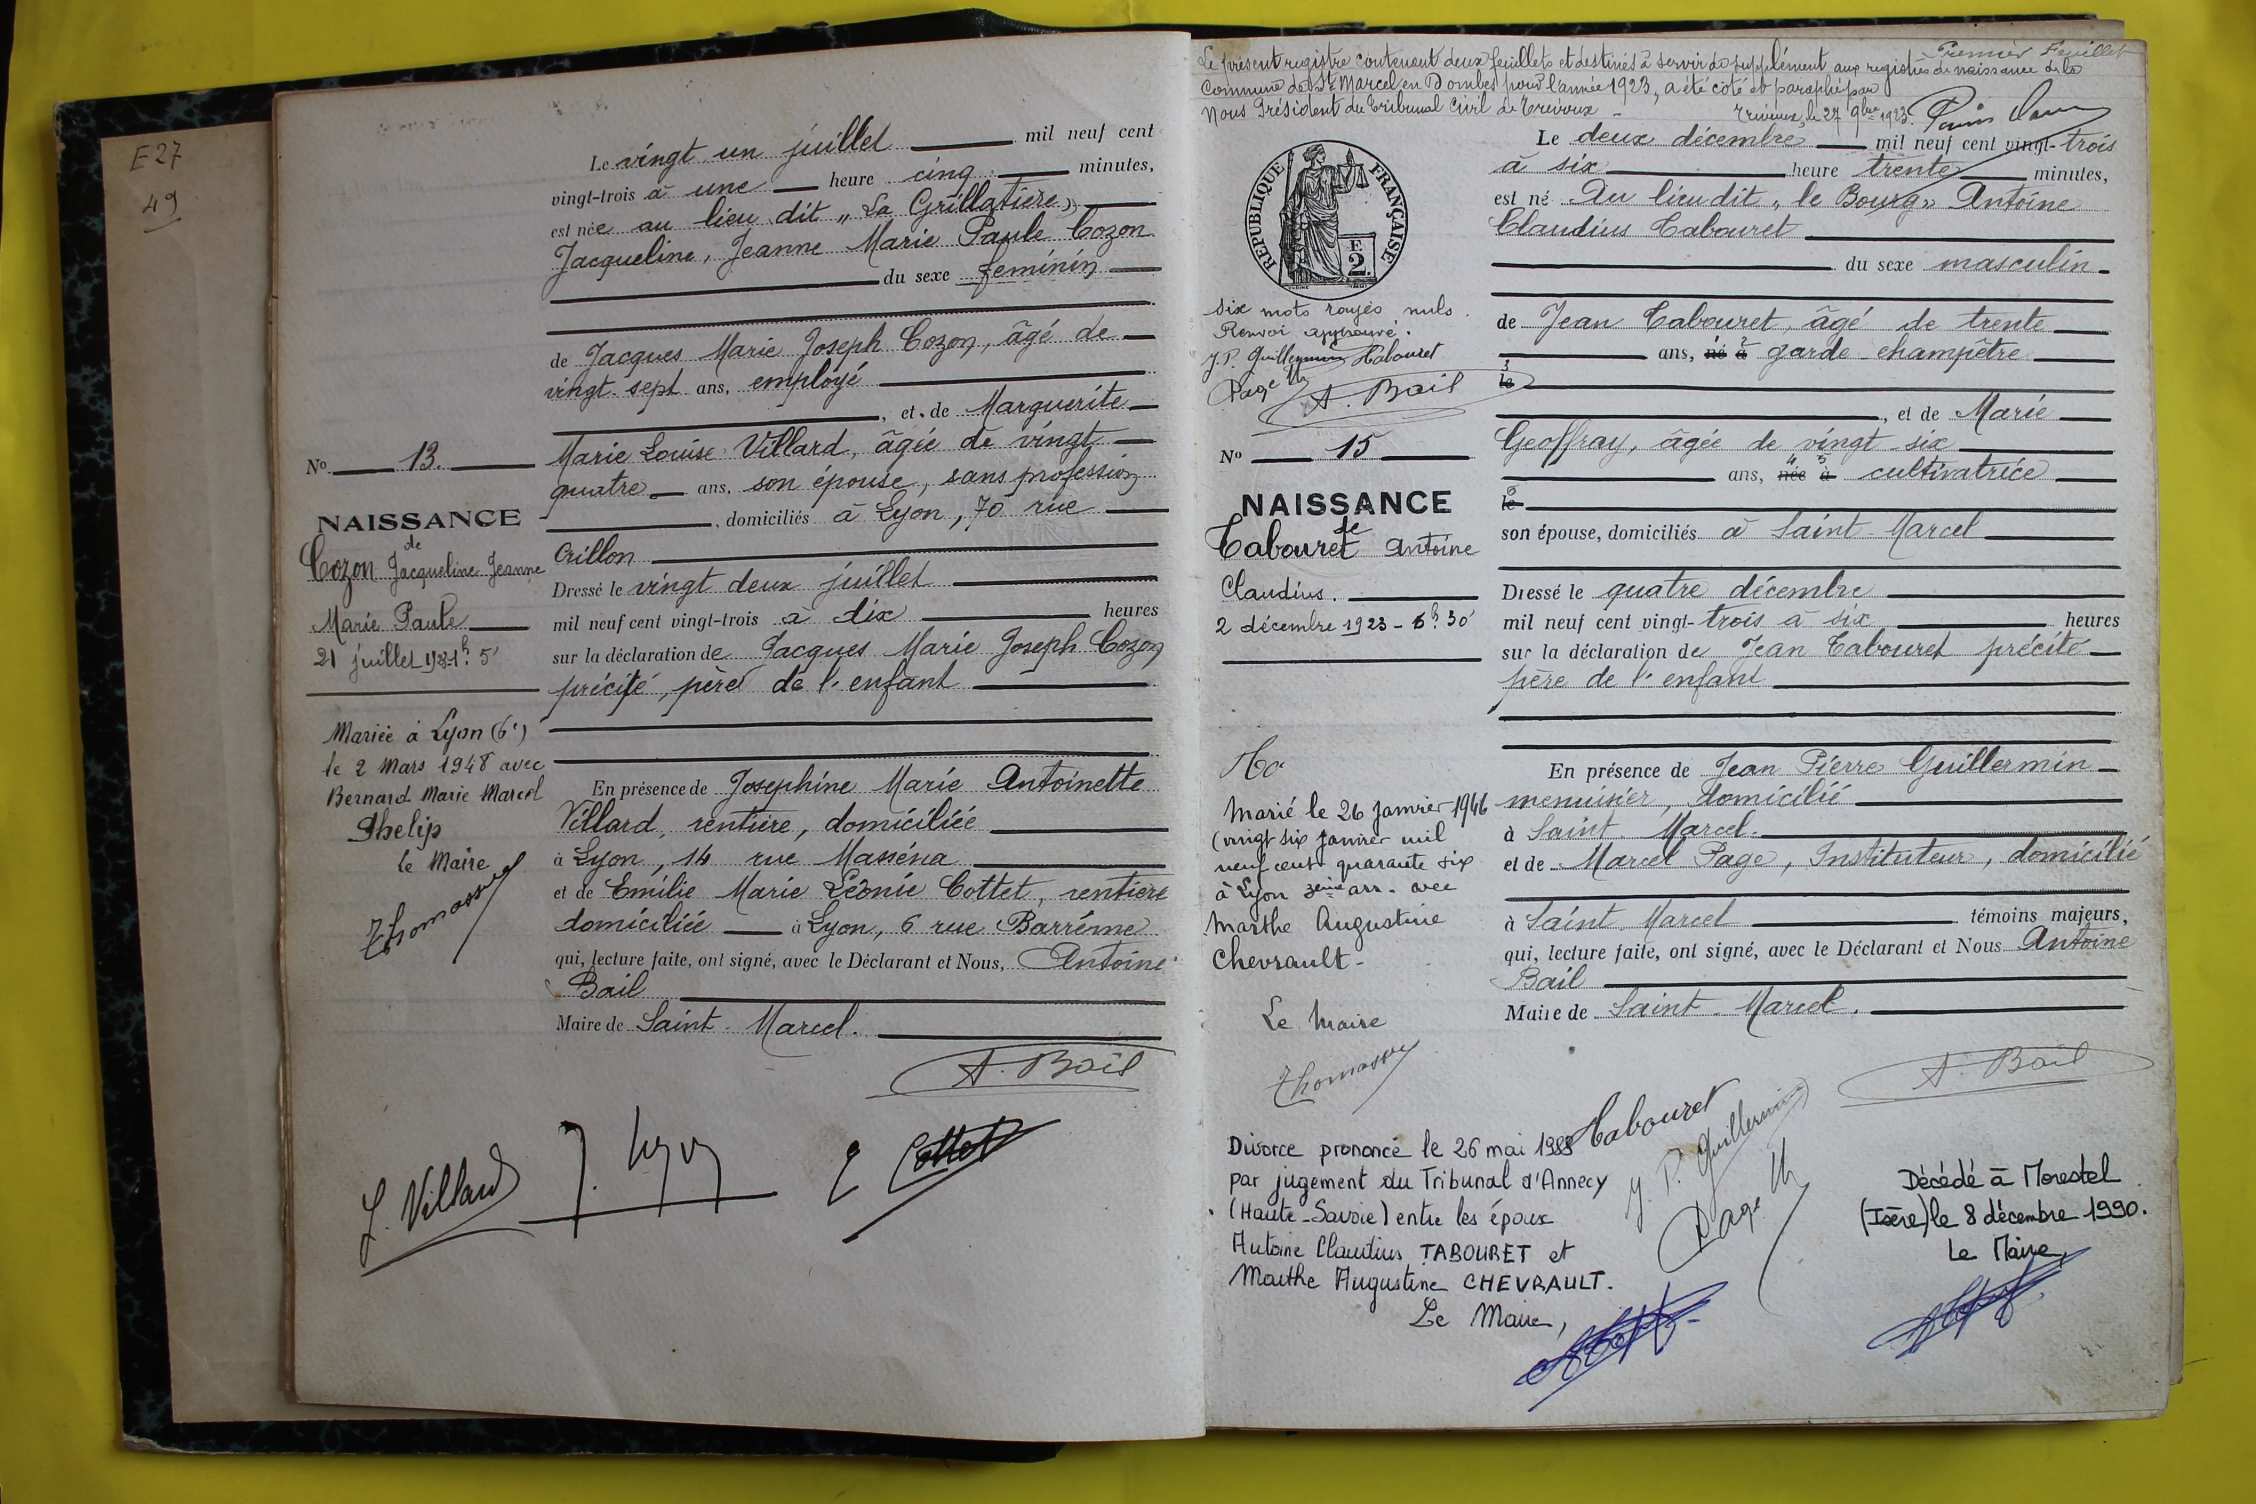 E27
49
Le vingt un juillet mil neuf cent
vingt-trois à une heure cinq minutes,
est née au lieu dit „ La Grillatière „
Jacqueline, Jeanne Marie Paule Cozon
du sexe féminin
de Jacques Marie Joseph Cozon, âgé de
vingt-sept ans, employé
, et de Marguerite
Marie Louise Villard, âgée de vingt
quatre ans, son épouse, sans profession
, domiciliés à Lyon, 70 rue
Crillon
Dressé le vingt deux juillet
mil neuf cent vingt-trois à dix heures
sur la déclaration de Jacques Marie Joseph Cozon
précité, père de l'enfant
En présence de Joséphine Marie Antoinette
Villard, rentière, domiciliée
à Lyon, 14 rue Masséna
et de Emilie Marie Léonie Cottet, rentière
domiciliée à Lyon, 6 rue Barrême
qui, lecture faite, ont signé, avec le Déclarant et Nous, Antoine
Bail
Maire de Saint-Marcel.
A. Bail
J. Villard
J. Cozon
E Cottet
No 13.
NAISSANCE
de
Cozon Jacqueline Jeanne
Marie Paule
21 juillet 1923-1h. 5'
Mariée à Lyon (6e)
le 2 Mars 1948 avec
Bernard Marie Marcel
Phelip
le Maire
Thomasset
Premier Feuillet
Le présent registre contenant deux feuillets et destinés à servir de supplément aux registres de naissance de la
Commune de St Marcel en Dombes pour l'année 1923, a été coté et paraphé par
Nous Président du Tribunal Civil de Trévoux
Trévoux, le 27 9bre 1923.
RÉPUBLIQUE FRANÇAISE
E
2.
Six mots rayés nuls.
Renvoi approuvé.
J. P. Guillermin Tabouret
Page M
A. Bail
No 15
NAISSANCE
de
Tabouret Antoine
Claudius.
2 décembre 1923 - 6h. 30'
Marié le 26 Janvier 1946
(vingt six Janvier mil
neuf cent quarante six
à Lyon 3ème arr. avec
Marthe Augustine
Chevrault-
Le Maire
Thomasset
Le deux décembre mil neuf cent vingt-trois
à six heure trente minutes,
est né Au lieu dit „ le Bourg „ Antoine
Claudius Tabouret
du sexe masculin
de Jean Tabouret, âgé de trente
ans, né à garde-champêtre
le
, et de Marie
Geoffray, âgée de vingt-six
ans, née à cultivatrice
le
son épouse, domiciliés à Saint-Marcel
Dressé le quatre décembre
mil neuf cent vingt-trois à six heures
sur la déclaration de Jean Tabouret précité
père de l'enfant
En présence de Jean Pierre Guillermin
menuisier, domicilié
à Saint-Marcel.
et de Marcel Page, Instituteur, domicilié
à Saint-Marcel témoins majeurs,
qui, lecture faite, ont signé, avec le Déclarant et Nous Antoine
Bail
Maire de Saint-Marcel.
A. Bail
Tabouret
J. P. Guillermin
Page M
Divorce prononcé le 26 mai 1983
par jugement du Tribunal d'Annecy
(Haute-Savoie) entre les époux
Antoine Claudius TABOURET et
Marthe Augustine CHEVRAULT.
Le Maire,
Décédé à Morestel
(Isère) le 8 décembre 1990.
Le Maire,